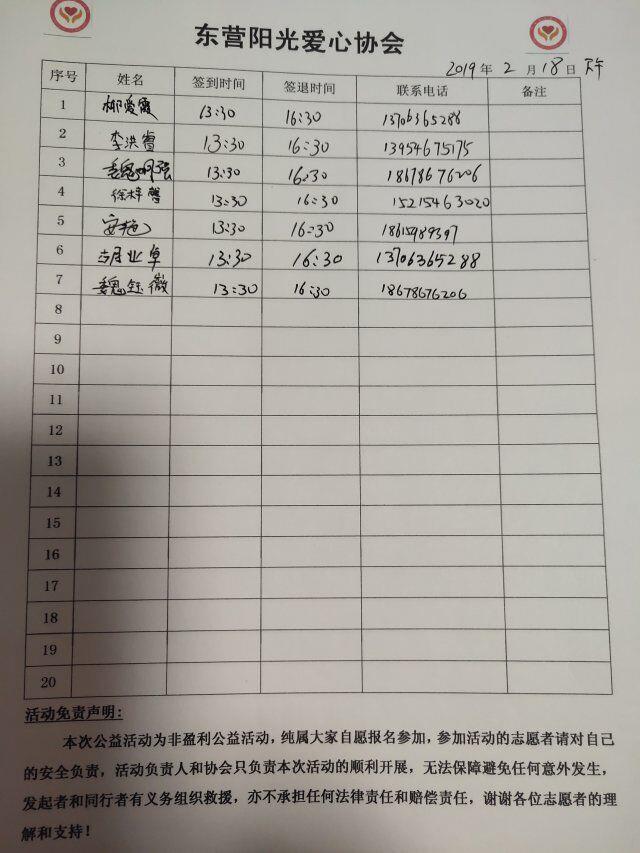 东营阳光爱心协会
2019年 2 月 18 日 下午
序号 姓名 签到时间 签退时间 联系电话 备注
1 柳爱霞 13:30 16:30 13706365288
2 李洪睿 13:30 16:30 13954675175
3 魏明强 13:30 16:30 18678676206
4 徐梓馨 13:30 16:30 15215463020
5 安艳 13:30 16:30 18615989397
6 业卓 13:30 16:30 13706365288
7 魏钰薇 13:30 16:30 18678676206
8
9
10
11
12
13
14
15
16
17
18
19
20
活动免责声明:
本次公益活动为非盈利公益活动，纯属大家自愿报名参加，参加活动的志愿者请对自己
的安全负责，活动负责人和协会只负责本次活动的顺利开展，无法保障避免任何意外发生，
发起者和同行者有义务组织救援，亦不承担任何法律责任和赔偿责任，谢谢各位志愿者的理
解和支持！